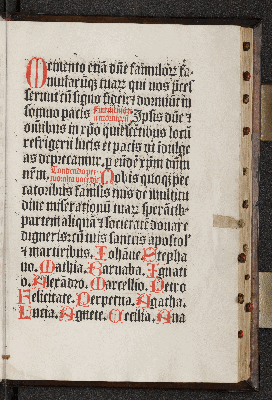 Memento etiã dñe famulorũ fa-
mularũq; tuarũ qui nos p̃ces
serunt cũ signo fidei: & dormiũt in
somno pacis. Ipsis dñe &
om̃ibus in xp̃o quiescẽtibus locũ
refrigerii lucis et pacis ut indulge
as deprecamur. p eũdẽ xp̃m dñm
nr̃m. Nobis quoq; pec
catoribus famulis tuis de multitu
dine miserationũ tuarũ sperãtib.
partem aliquã & societatẽ donare
digneris: cũ tuis sanctis apostol'
& martiribus. Iohãne. Stepha
no. Mathia. Barnaba. Ignati
o. Alexãdro. Marcellio. Petro
Felicitate. Perpetua. Agatha.
Lucia. Agnete. Cecilia. Ana